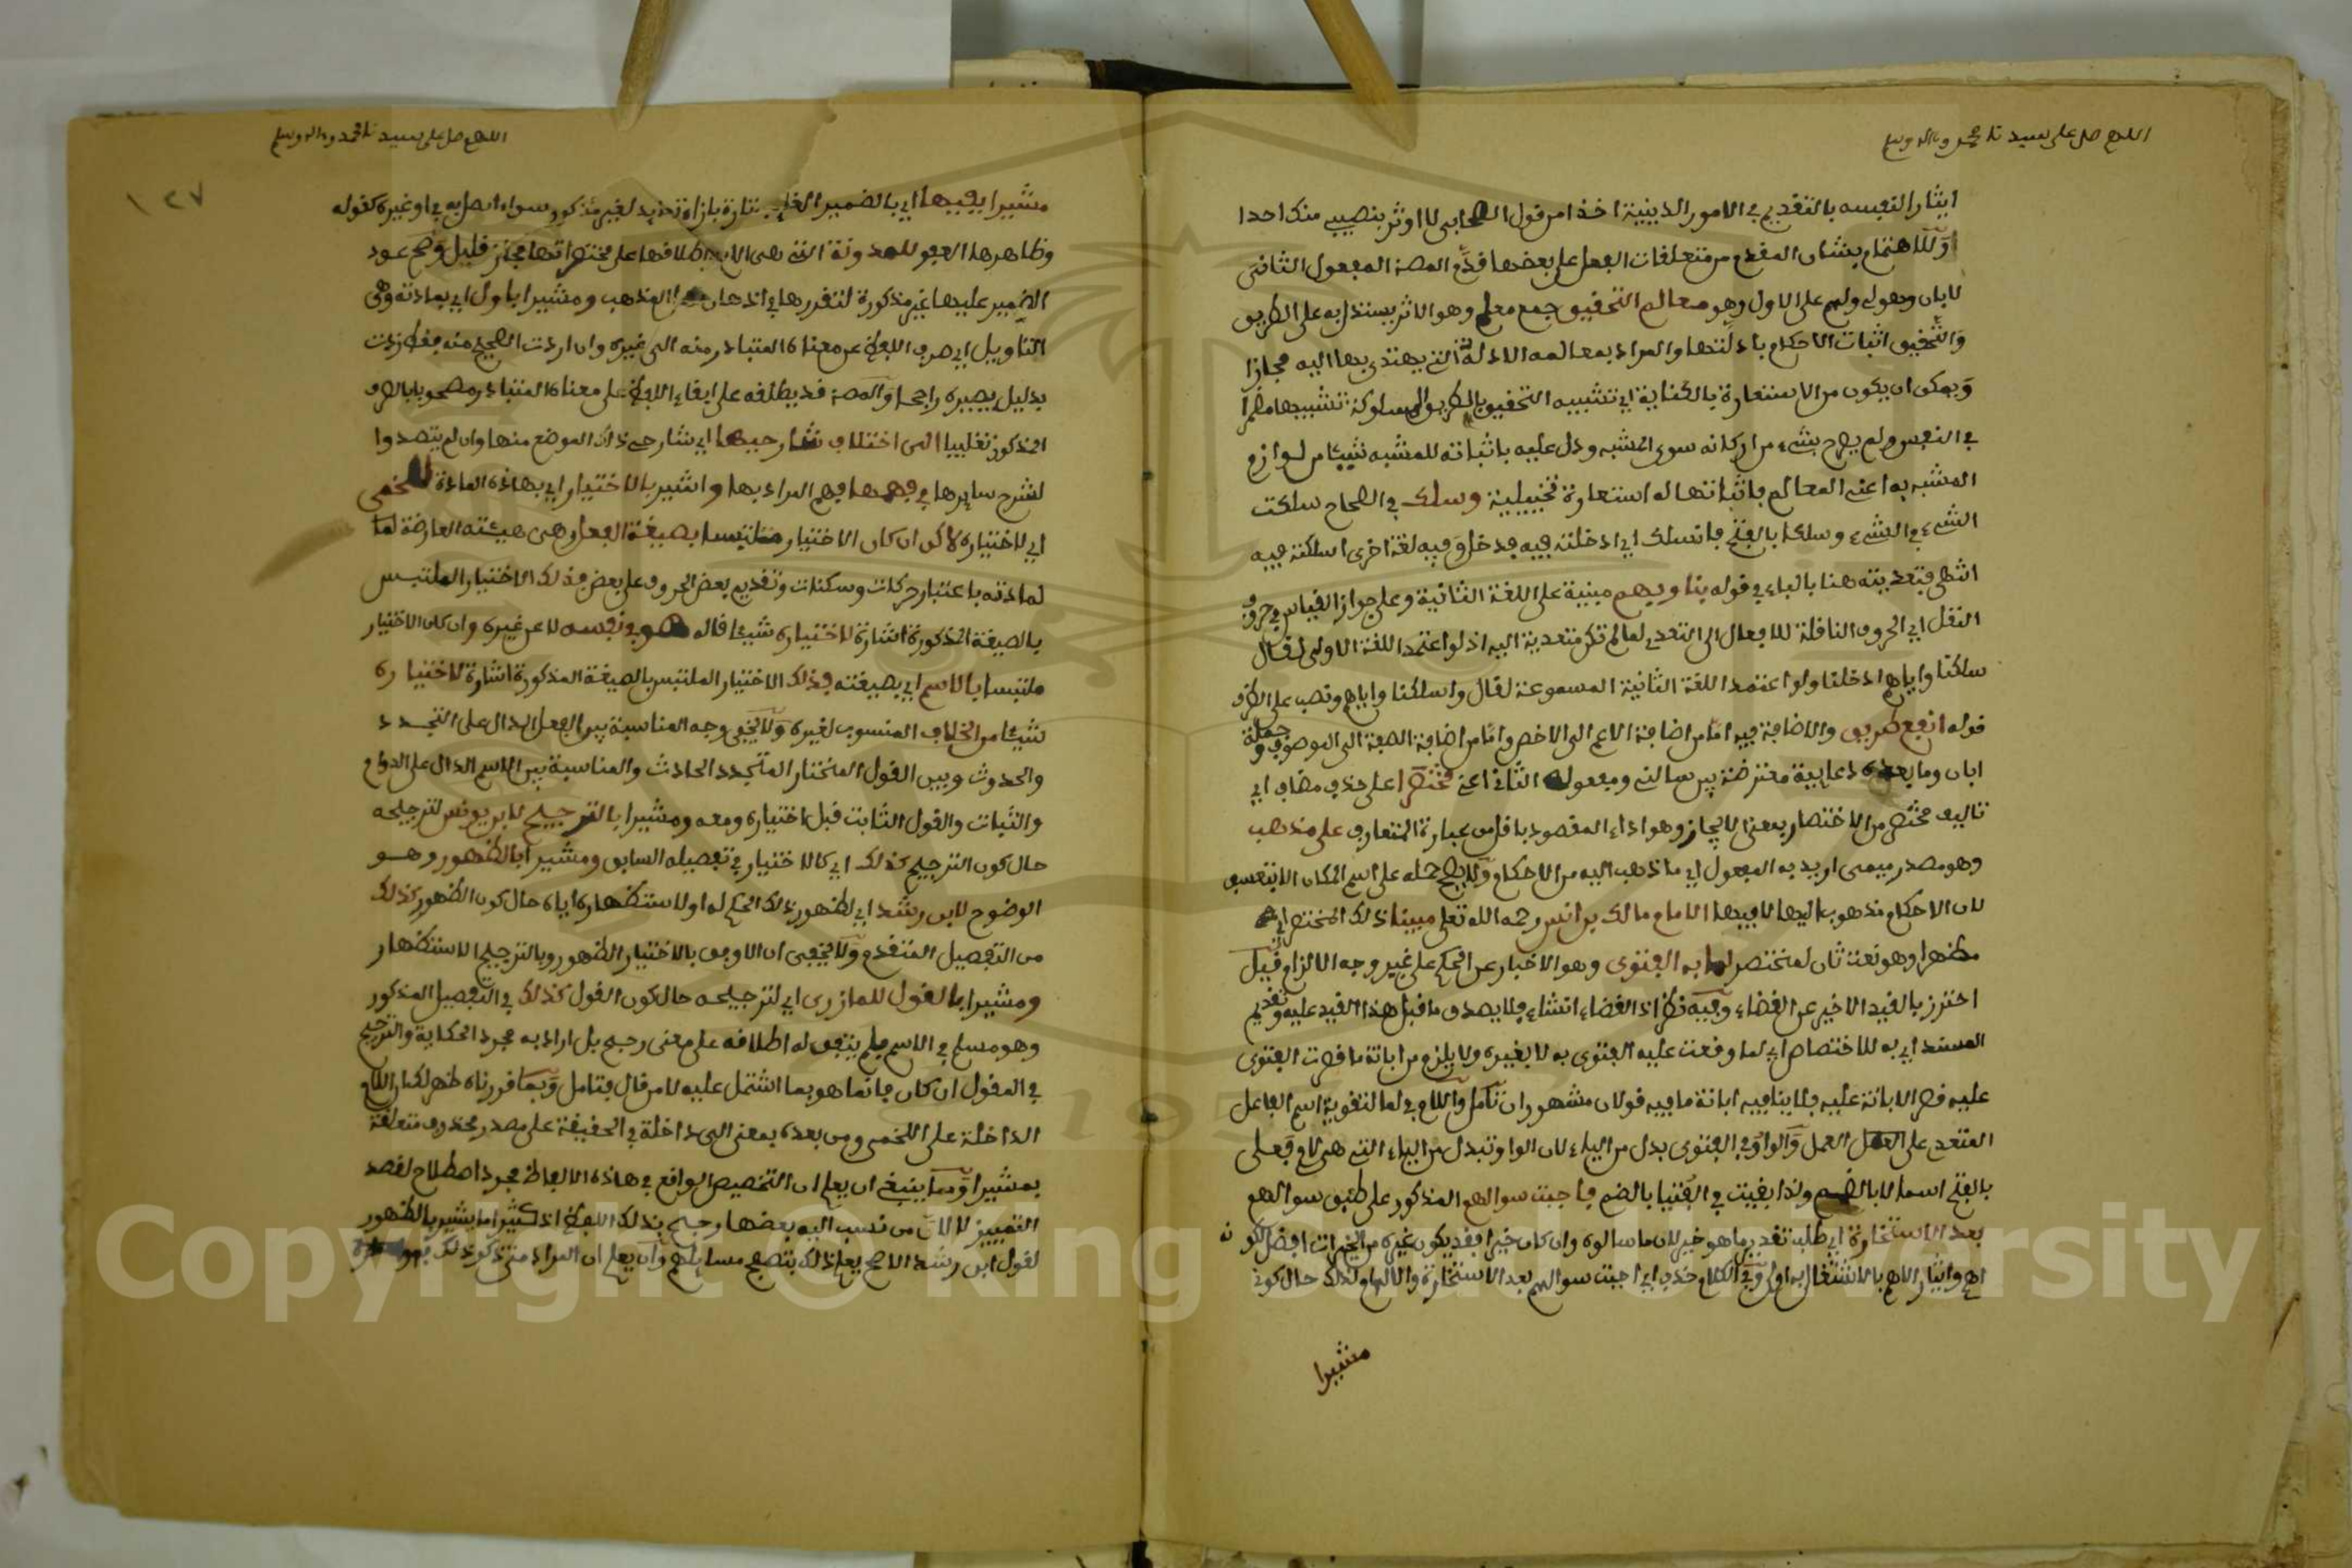 اللهم صل على سيدنا محمد وءاله وسلم
ايثار النفسه بالتقديم في الامور الدينية اخذا من قول الصحابي لا اوثر بنصيبي منك احدا
او للاهتمام بشان المقدم من متعلقات الفعل على بعضها قدم المصـ المفعول الثاني
لابان وهو لي ولهم على الاول وهو معالم التحقيق جمع معلم وهو الاثر يستدل به على الطريق
والتحقيق اثبات الاحكام بادلتها والمراد بمعالمه الادلة التي يهتدى بها اليه مجازا
ويمكن ان يكون من الاستعارة بالكناية اي تشبيه التحقيق بالطريق المسلوكة تشبيها مضمرا
في النفس ولم يصرح بشيء من اركانه سوى المشبه ودل عليه باثباته للمشبه شيئا من لوازم
المشبه به اعني المعالم فاثباتها له استعارة تخييلية وسلك في الصحاح سلكت
الشيء في الشيء وسلكا بالفتح فانسلك اي ادخلته فيه فدخل وفيه لغة اخرى اسلكته فيه
انتهى فتعديته هنا بالباء في قوله بنا وبهم مبنية على اللغة الثانية وعلى جواز القياس في حروف
النقل اي الحروف الناقلة للافعال الى التعدي لما لم تكن متعدية اليه اذ لو اعتمد اللغة الاولى لقال
سلكنا واياهم ادخلنا ولو اعتمد اللغة الثانية المسموعة لقال واسلكنا واياهم ونصب على الظرف
قوله انفع طريق والاضافة فيه اما من اضافة الاعم الى الاخص واما من اضافة الصفة الى الموصوف وجملة
ابان وما بعده دعايية معترضة بين سالني ومفعوله الثاني اعني مختصرا على حذف مضاف اي
تاليف مختصر من الاختصار بمعنى الايجاز وهو اداء المقصود باقل من عبارة المتعارف على مذهب
وهو مصدر ميمي اريد به المفعول اي ما ذهب اليه من الاحكام ولا يصح حمله على اسم المكان الا بتعسف
لان الاحكام مذهوب اليها لا فيها الامام مالك بن انس رحمه الله تعلى مبينا ذلك المختصر اي
مظهرا وهو نعت ثان لمختصر لما به الفتوى وهو الاخبار عن الحكم على غير وجه الالزام قيل
احترز بالقيد الاخير عن القضاء وفيه نظر اذ القضاء انشاء فلا يصدق ما قبل هذا القيد عليه وتقديم
المسند اي به للاختصاص اي لما وقعت عليه الفتوى به لا بغيره ولا يلزم من ابانة ما قصرت الفتوى
عليه قصر الابانة عليه فلا ينافيه ابانة ما فيه قولان مشهوران تامل واللام في لما لتقوية اسم الفاعل
المتعد على العمل والواو في الفتوى بدل من الياء لان الواو تبدل من الياء التي هي لام فعلى
بالفتح اسما لا بالضم ولذا بقيت في الفتيا بالضم فاجبت سوالهم المذكور على طبق سوالهم
بعد الاستخارة اي طلب تقدير ما هو خير لان ما سالوه وان كان خيرا فقد يكون غيره من الخيرات افضل لكونه
اهم وايثار الاهم بالاشتغال به اولى وفي الكلام حذف اي اجبت سوالهم بعد الاستخارة والالهام ولذلك حال كوني
مشيرا
اللهم صل على سيدنا محمد وءاله وسلم
١٢٧
مشيرا بفيها اي بالضمير الغايب تارة بازاء تحديد لغير مذكور سواء اتصل به في او غيره كقوله
وظاهرها العفو للمدونة التي هي الام اطلاقها على مختصراتها مجاز قليل وصح عود
الضمير عليها غير مذكورة لتقررها في اذهان اهل المذهب ومشيرا باول اي بمادته وهي
التاويل اي صرف اللفظ عن معناه المتبادر منه الى غيره وان اردت الصحيح منه فقط زدت
بدليل يصيره راجحا والمصـ قد يطلقه على ابقاء اللفظ على معناه المتبادر مصحوبا بالصرف
المذكور تغليبا الى اختلاف شارحيها اي شارحي ذلك الموضع منها وان لم يتصدوا
لشرح سايرها في فهمها فهم المراد بها واشير بالاختيار اي بهاذه المادة للخمى
اي لاختياره لاكن ان كان الاختيار متلبسا بصيغة الفعل وهي هيئته العارضة
لمادته باعتبار حركات وسكنات وتقديم بعض الحروف على بعض فذلك الاختيار الملتبس
بالصيغة المذكورة اشارة لاختياره شيئا قاله هو في نفسه لا عن غيره وان كان الاختيار
ملتبسا بالاسم اي بصيغته فذلك الاختيار الملتبس بالصيغة المذكورة اشارة لاختياره
شيئا من الخلاف المنسوب لغيره ولا يخفى وجه المناسبة بين الفعل الدال على التجدد
والحدوث وبين القول المختار المتجدد الحادث والمناسبة بين الاسم الدال على الدوام
والثبات والقول الثابت قبل اختياره ومعه ومشيرا بالترجيح لابن يونس لترجيحه
حال كون الترجيح كذلك اي كالاختيار في تفصيله السابق ومشيرا بالظهور وهو
الوضوح لابن رشد اي لظهور ذلك الحكم له او لاستظهاره اياه حال كون الظهور كذلك
من التفصيل المتقدم ولا يخفى ان الاوفق بالاختيار الظهور وبالترجيح الاستظهار
ومشيرا بالقول للمازري اي لترجيحه حال كون القول كذلك في التفصيل المذكور
وهو مسلم في الاسم فلم يتفق له اطلاقه على معنى رجح بل اراد به مجرد الحكاية والترجيح
في المقول ان كان فانما هو بما اشتمل عليه لا من قال فتامل وبما قررناه ظهر لك ان اللام
الداخلة على اللخمى ومن بعده بمعنى الى داخلة في الحقيقة على مصدر محذوف متعلقة
بمشيرا ومما ينبغي ان يعلم ان التخصيص الواقع في هاذه الالفاظ مجرد اصطلاح لقصد
التمييز لا لان من نسب اليه بعضها رجح بذلك اللفظ اذ كثيرا ما يشير بالظهور
لقول ابن رشد الاصح يعلم ذلك بتصفح مسايلهم وان يعلم ان المراد متى ذكر ذلك